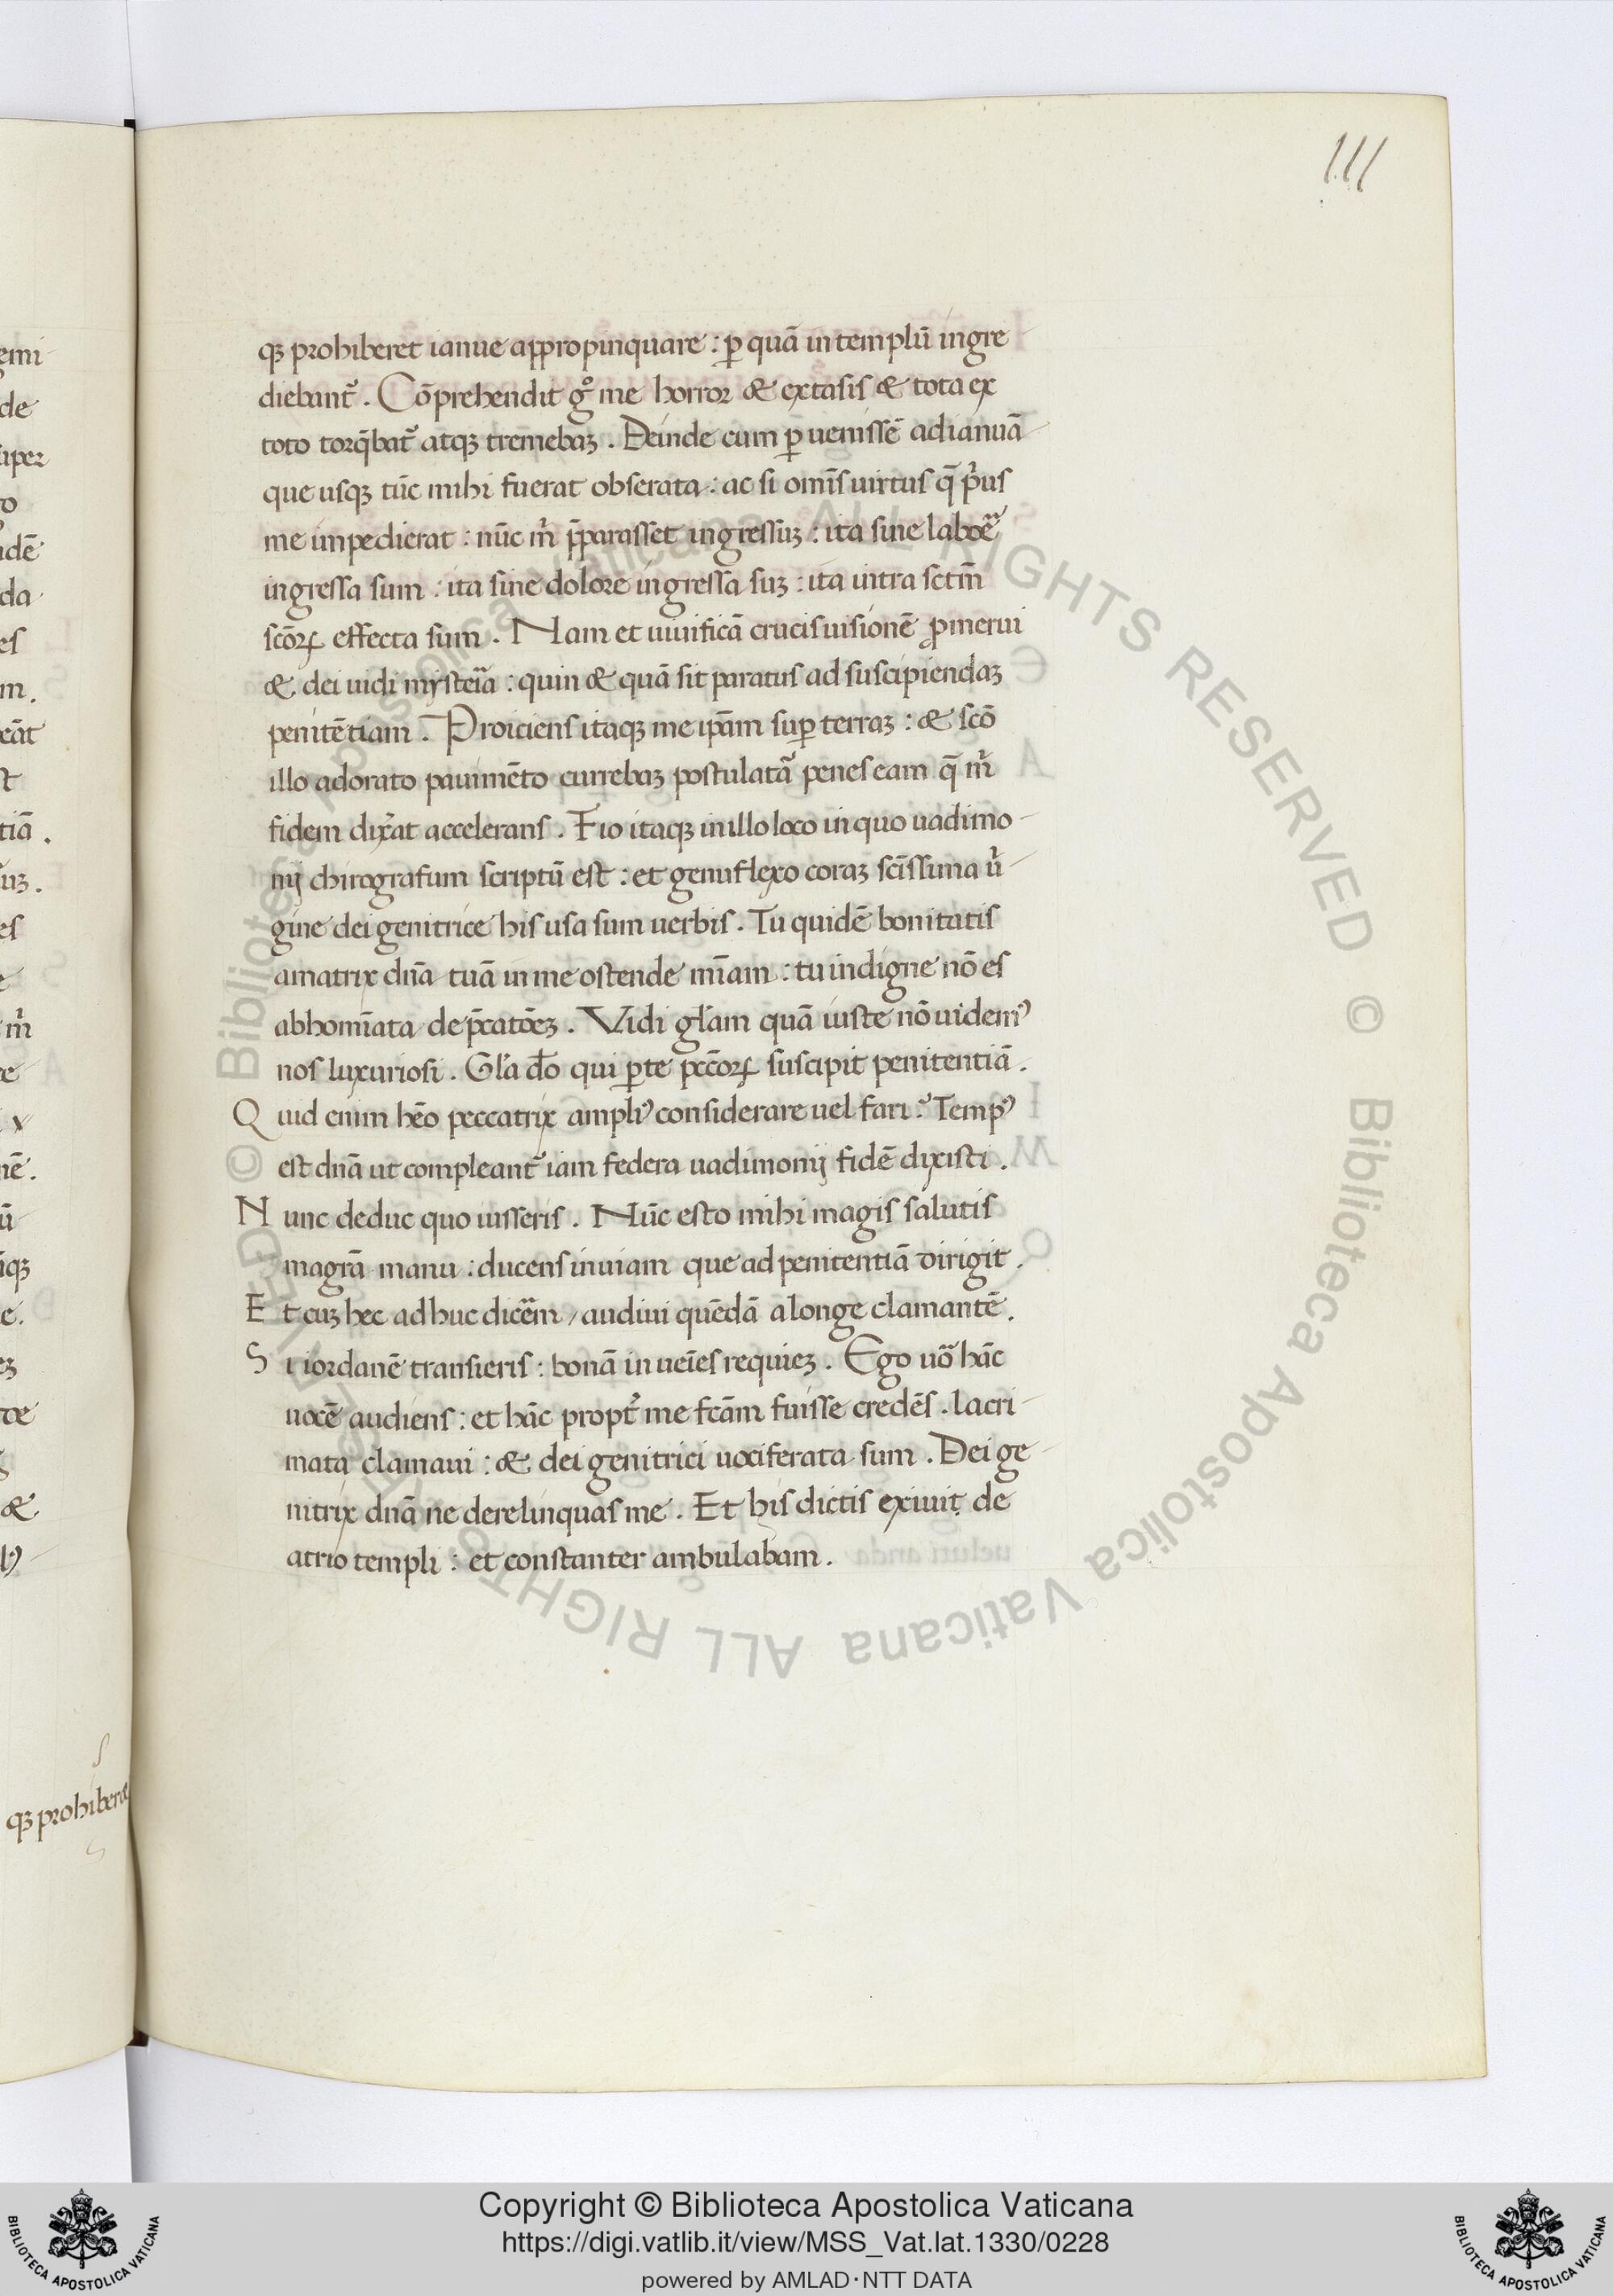 111
qꝫ prohiberet ianue appropinquare : ꝑ quā in templū ingre
diebant᷑ . Cōprehendit gͦ me horror & extasis & tota ex
toto torq̄bat᷑ atqꝫ tremebaꝫ . Deinde cum ꝑuenissē ad ianuā
que usqꝫ tūc mihi fuerat obserata : ac si omīs uirtus q̄ p̓us
me impedierat : nūc m̓ p̄parasset ingressūꝫ : ita sine laboē
ingressa sum : ita sine dolore ingressa suꝫ : ita intra sctm̄
scōꝝ effecta sum . Nam et uiuificā crucis uisionē ꝓmerui
& dei uidi mysteīa : quin & quā sit paratus ad suscipiendaꝫ
penitētiam . Proiciens itaqꝫ me ip̄am suꝑ terraꝫ : & scō
illo adorato pauimēto currebaꝫ postulatā penes eam q̄ m̓
fidem dix̓at accelerans . Fio itaqꝫ in illo loco in quo uadimo
nij chirografum scriptū est : et genuflexo coraꝫ scīssima u̓
gine dei genitrice his usa sum uerbis . Tu quidē bonitatis
amatrix dn̄a tuā in me ostende mīam : tu indigne nō es
abhomīata dep̄catōeꝫ . Vidi gl̓am quā iuste nō uidemꝰ
nos luxuriosi . Gl̓a d̄o qui ꝑ te pcc̄oꝝ suscipit penitentiā .
Quid enim hēo peccatrix ampliꝰ considerare uel fari ? Tempꝰ
est dn̄a ut compleant᷑ iam federa uadimonij fidē dixisti .
Nunc deduc quo iusseris . Nūc esto mihi magis salutis
magr̄a manu : ducens in uiam que ad penitentiā dirigit .
Et cuꝫ hec adhuc dicēm / audiui quēdā a longe clamantē .
Si iordanē transieris : bonā inueīes requieꝫ . Ego uō hāc
uocē audiens : et hāc propt̓ me fcām fuisse credēs . lacri
mata clamaui : & dei genitrici uociferata sum . Dei ge
nitrix dn̄a ne derelinquas me . Et his dictis exiuit de
atrio templi : et constanter ambulabam .
qꝫ prohiberet
© Biblioteca Apostolica Vaticana ALL RIGHTS RESERVED
© Biblioteca Apostolica Vaticana ALL RIGHTS RESERVED
Copyright © Biblioteca Apostolica Vaticana
https://digi.vatlib.it/view/MSS_Vat.lat.1330/0228
powered by AMLAD·NTT DATA
BIBLIOTECA APOSTOLICA VATICANA
BIBLIOTECA APOSTOLICA VATICANA